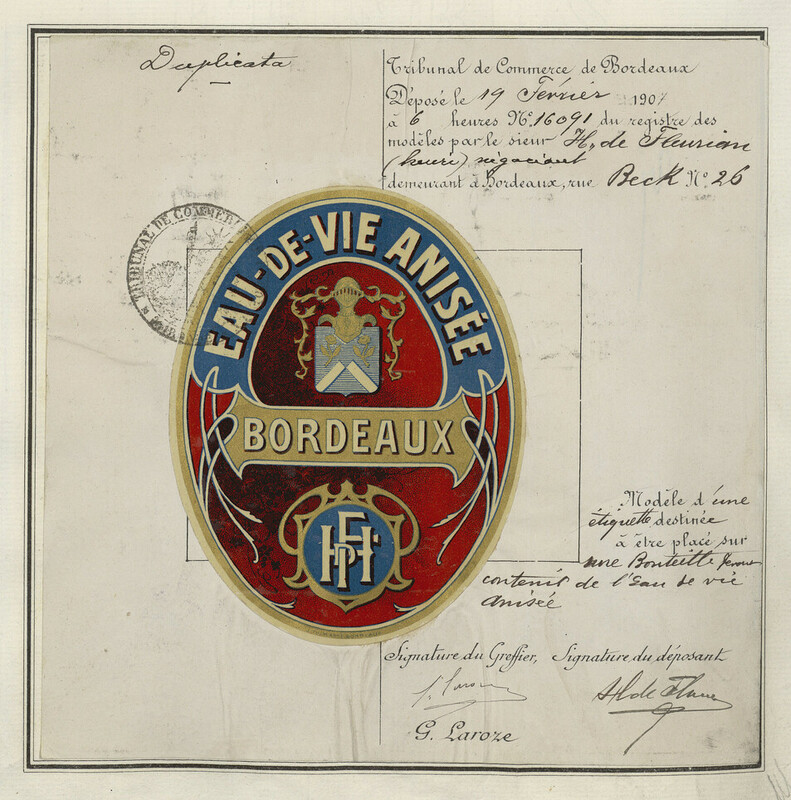 Duplicata
Tribunal de Commerce de Bordeaux
Déposé le 19 Février 1907
à 6 heures Nº 16091 du registre des
modèles par le sieur H. de Fleurian
(henri) négociant
demeurant à Bordeaux, rue Beck Nº 26
TRIBUNAL DE COMMERCE
EAU-DE-VIE ANISÉE
BORDEAUX
HF
Modèle d'une
étiquette destinée
à être placé sur
une Bouteille devant
contenir de l'Eau de vie
anisée
Signature du Greffier, Signature du déposant
G. Laroze